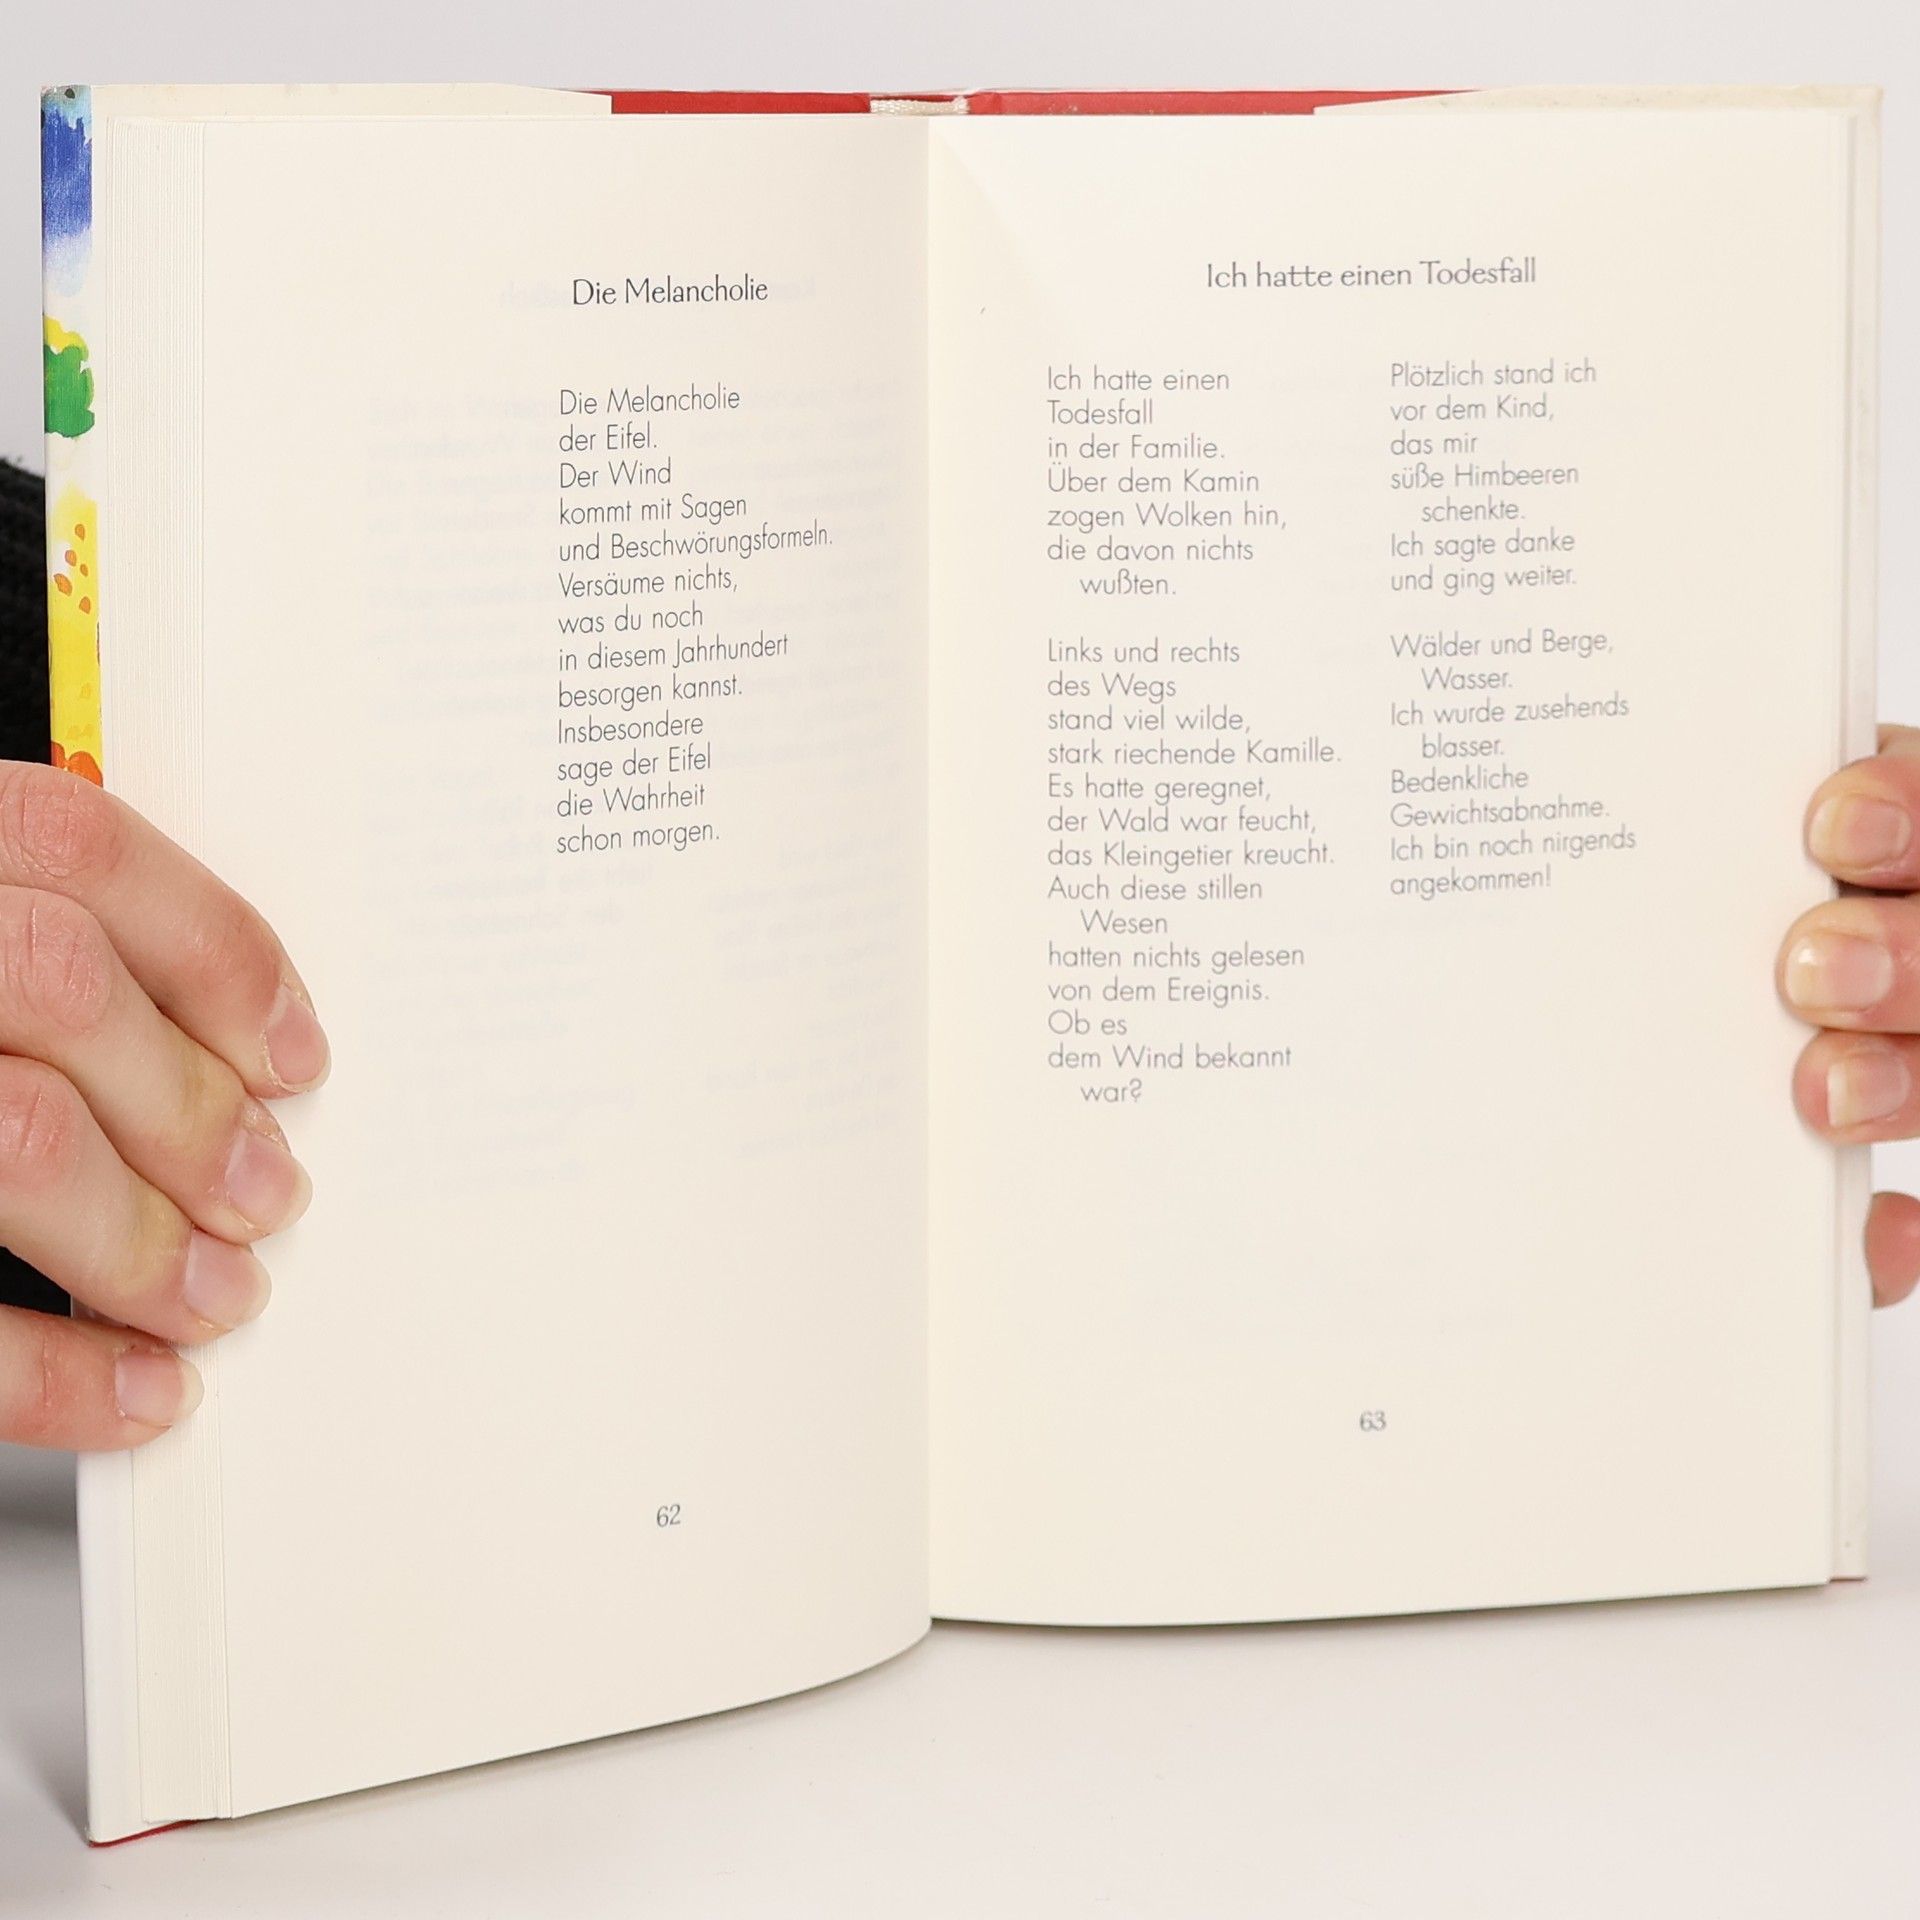 Die Melancholie
Die Melancholie
der Eifel.
Der Wind
kommt mit Sagen
und Beschwörungsformeln.
Versäume nichts,
was du noch
in diesem Jahrhundert
besorgen kannst.
Insbesondere
sage der Eifel
die Wahrheit
schon morgen.
62
Ich hatte einen Todesfall
Ich hatte einen
Todesfall
in der Familie.
Über dem Kamin
zogen Wolken hin,
die davon nichts
wußten.
Links und rechts
des Wegs
stand viel wilde,
stark riechende Kamille.
Es hatte geregnet,
der Wald war feucht,
das Kleingetier kreucht.
Auch diese stillen
Wesen
hatten nichts gelesen
von dem Ereignis.
Ob es
dem Wind bekannt
war?
Plötzlich stand ich
vor dem Kind,
das mir
süße Himbeeren
schenkte.
Ich sagte danke
und ging weiter.
Wälder und Berge,
Wasser.
Ich wurde zusehends
blasser.
Bedenkliche
Gewichtsabnahme.
Ich bin noch nirgends
angekommen!
63